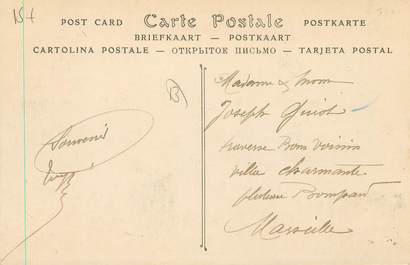 15+
POST CARD Carte Postale POSTKARTE
BRIEFKAART — POSTKAART
CARTOLINA POSTALE — ОТКРЫТОЕ ПИСЬМО — TARJETA POSTAL
B
Madame &
Joseph
Souvenir
traverse Bon voisin
villa charmante
plateau Bompard
Marseille